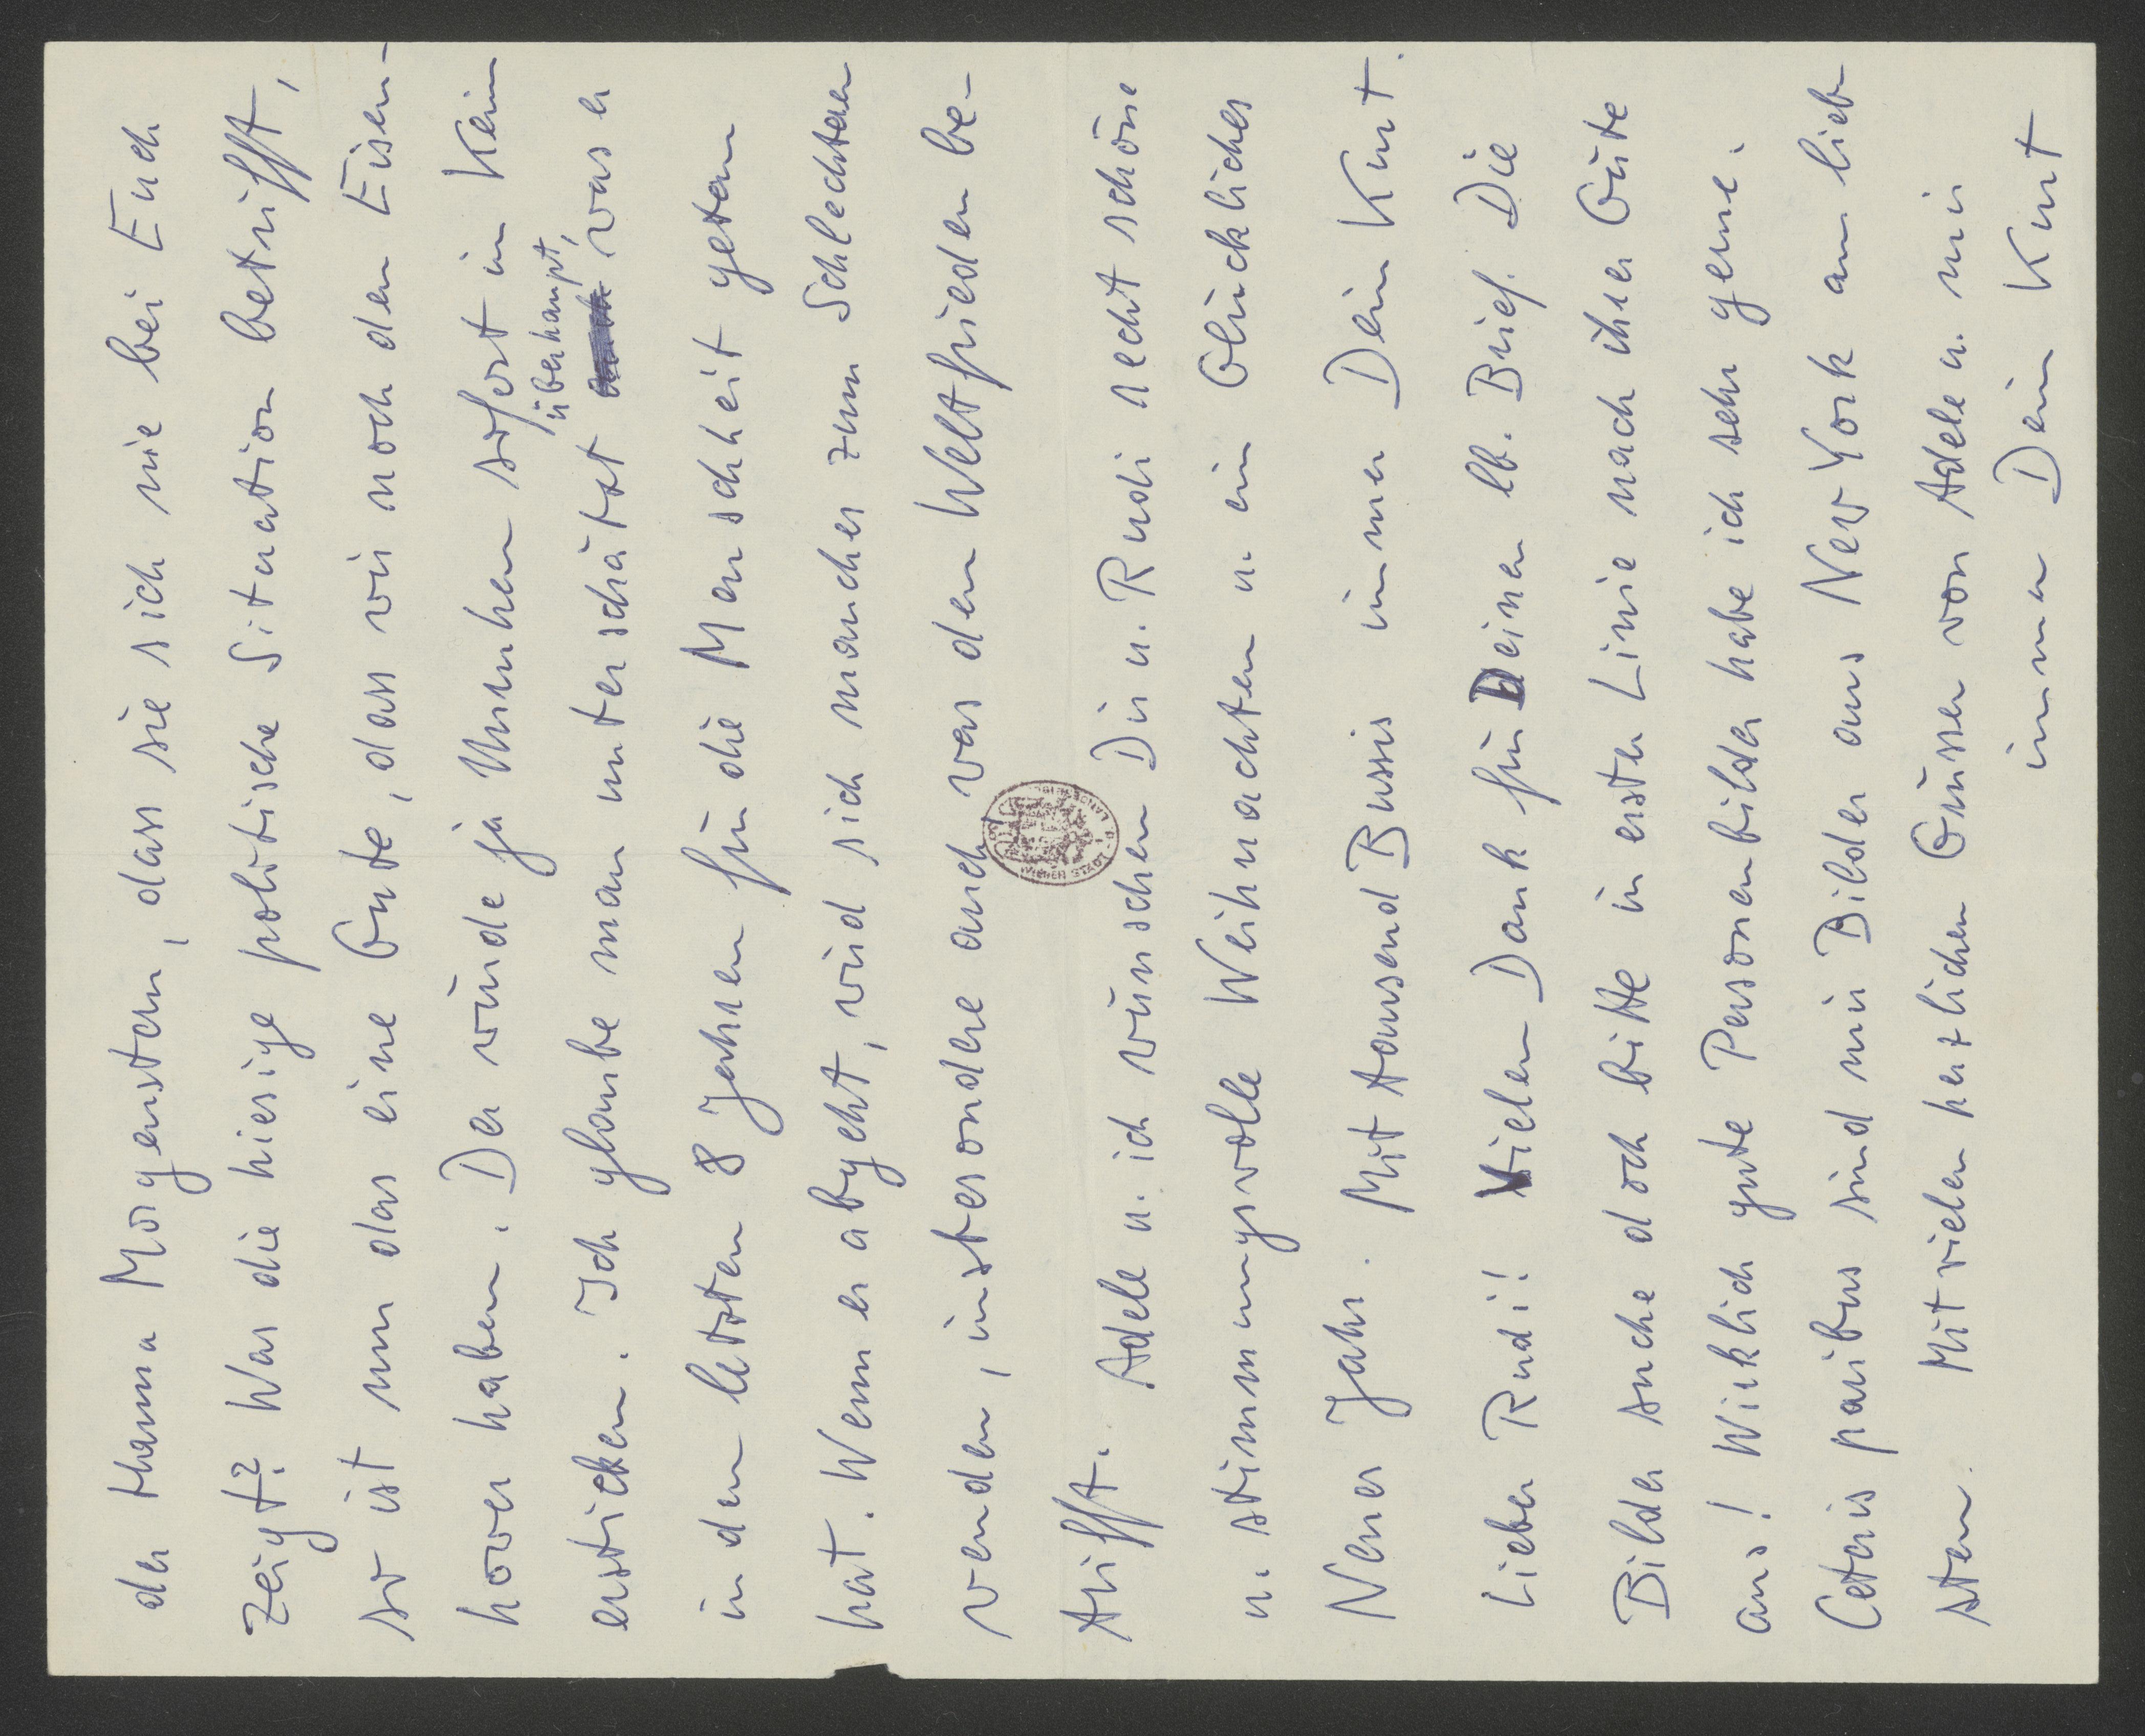 der Hanna Morgenstern, dass sie sich nie bei Euch
zeigt? Was die hiesige politische Situation betrifft,
so ist nun das eine Gute, dass wir noch den Eisen-
hower haben. Der würde ja Unruhen sofort im Keim
ersticken. Ich glaube man unterschätzt überhaupt, was er
in den letzten 8 Jahren für die Menschheit getan
hat. Wenn er abgeht, wird sich manches zum Schlechteren
wenden, insbesondere auch was den Weltfrieden be-
trifft. Adele u. ich wünschen Dir u. Rudi recht schöne
u. stimmungsvolle Weihnachten u. ein Glückliches
Neues Jahr. Mit tausend Bussis immer Dein Kurt.
Lieber Rudi! Vielen Dank für Deinen lb. Brief. Die
Bilder suche doch bitte in erster Linie nach ihrer Güte
aus! Wirklich gute Personenbilder habe ich sehr gerne.
Ceteris paribus sind mir Bilder aus New York am lieb
sten. Mit vielen herzlichen Grüssen von Adele u. mir
immer Dein Kurt